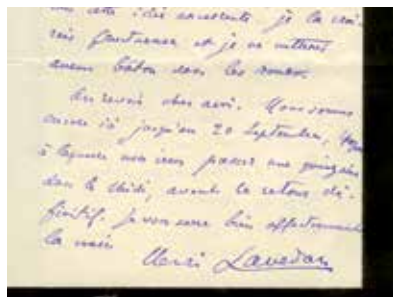 cette idée excellente, je la
et je ne mettrai
aucun bâton dans les roues.
Au revoir cher ami. Nous sommes
encore ici jusqu'au 20 Septembre,
à laquelle nous irons passer une quinzaine
dans le Midi, avant le retour dé-
finitif. Je vous serre bien affectueusement
la main
Henri Lavedan